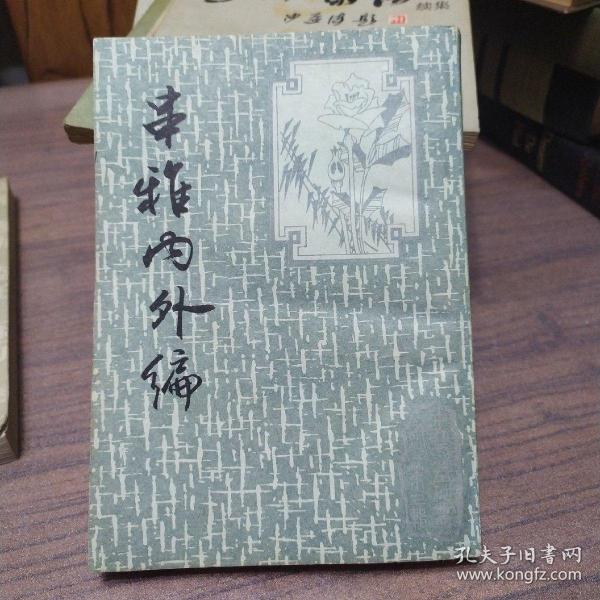 续集
串雅内外编
孔夫子旧书网
www.kongfz.com